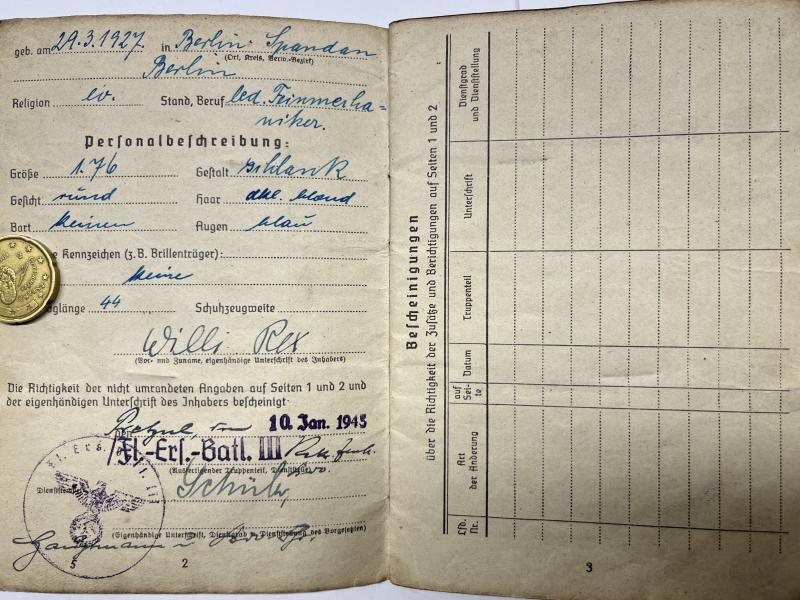 geb. am 29.3.1927. in Berlin-Spandau
(Ort, Kreis, Verw.-Bezirk)
Berlin
Religion ev. Stand, Beruf led. Feinmecha-
niker.
Personalbeschreibung:
Größe 1.76 Gestalt schlank
Gesicht rund Haar dkl. blond
Bart keinen Augen blau
Kennzeichen (z. B. Brillenträger):
keine
länge 44 Schuhzeugweite
Willi Rex
(Vor- und Zuname, eigenhändige Unterschrift des Inhabers)
Die Richtigkeit der nicht umrandeten Angaben auf Seiten 1 und 2 und
der eigenhändigen Unterschrift des Inhabers bescheinigt
den 10. Jan. 1945
Fl.-Ers.-Batl. III
(Ausfertigender Truppenteil, Dienststelle)
(Eigenhändige Unterschrift, Dienstgrad u. Dienststellung des Vorgesetzten)
2
Bescheinigungen
über die Richtigkeit der Zusätze und Berichtigungen auf Seiten 1 und 2
Lfd. Nr.
Art der Änderung
auf Sei-te
Datum
Truppenteil
Unterschrift
Dienstgrad und Dienststellung
3